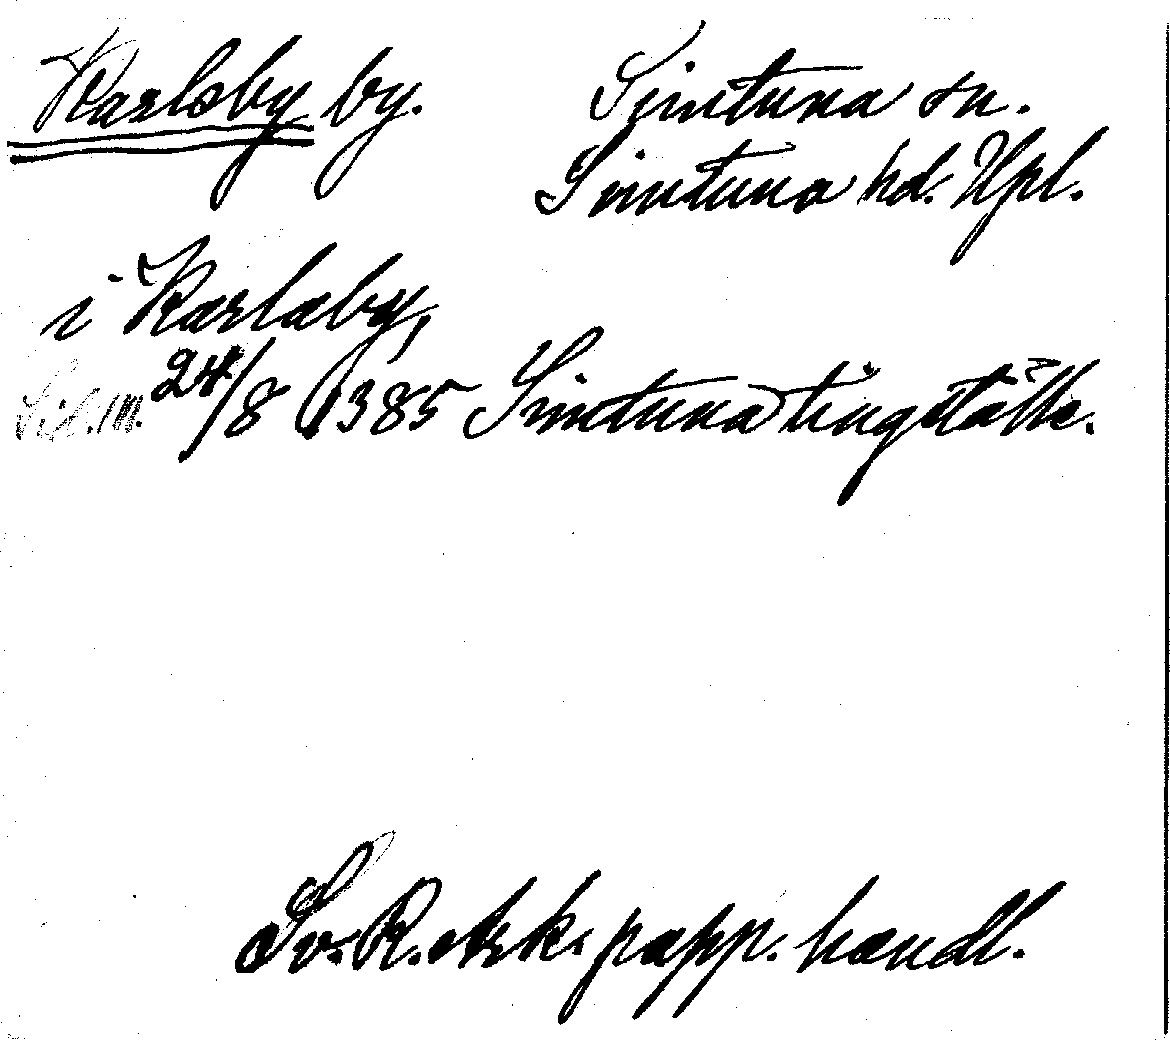 Karlsby by. Simtuna sn.
Simtuna hd. Upl.
i Karlaby,
24/8 1385 Simtuna tingställe.
Sv. R. ark. papp. handl.